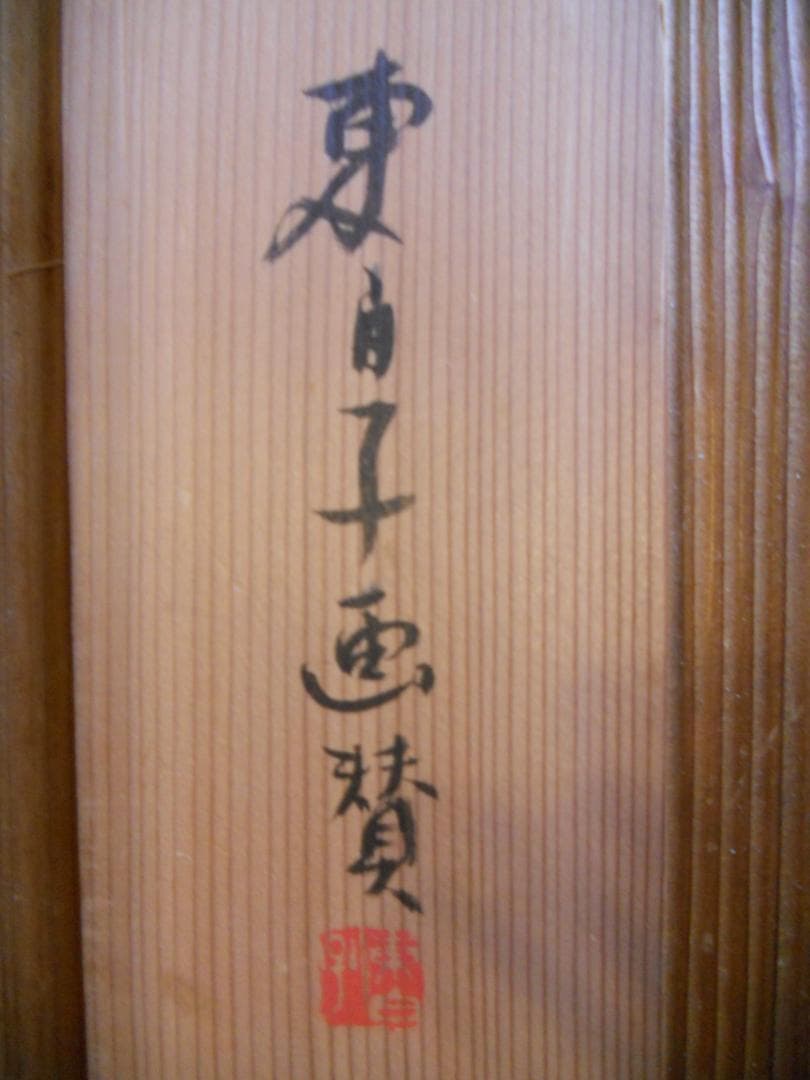 東自子画賛